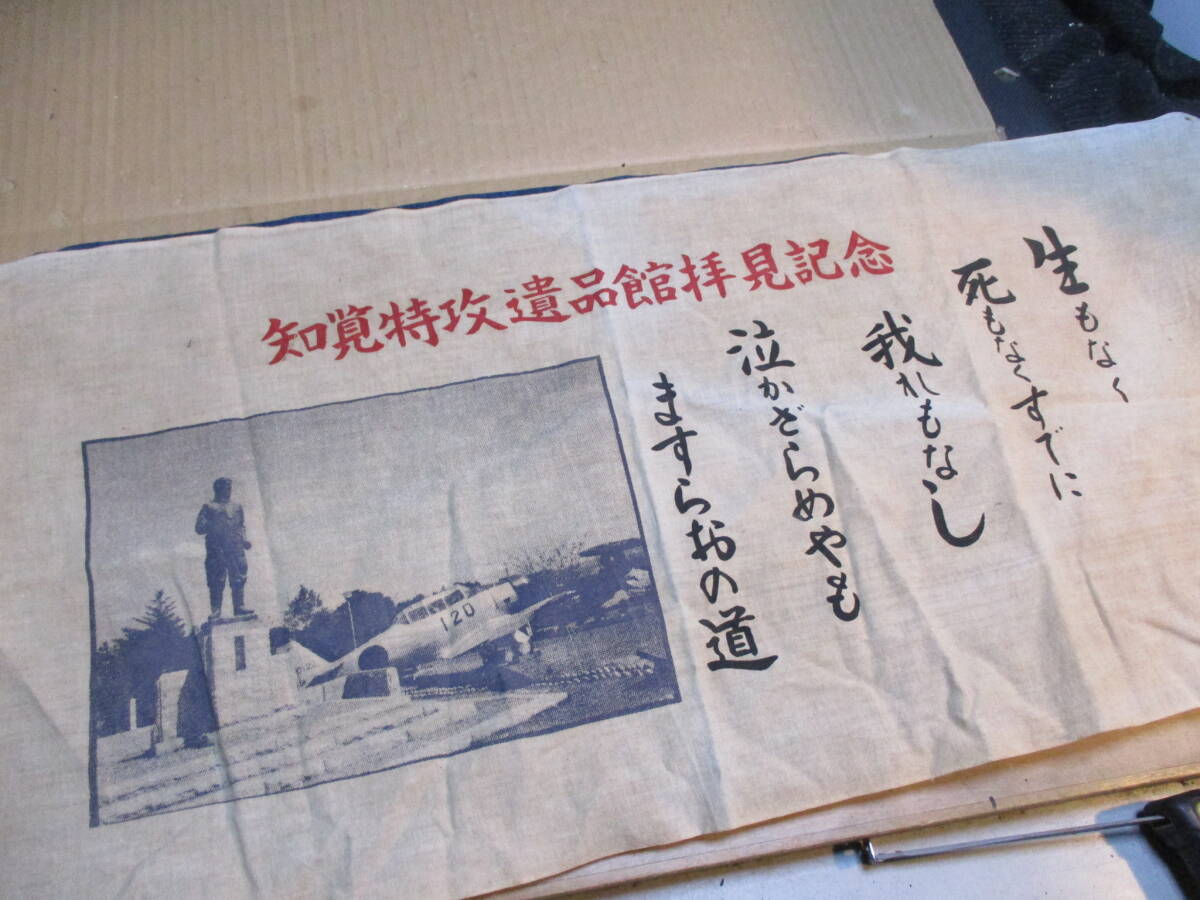 知覧特攻遺品館拝見記念
生もなく
死もなくすでに
我れもなし
泣かざらめやも
ますらおの道
120